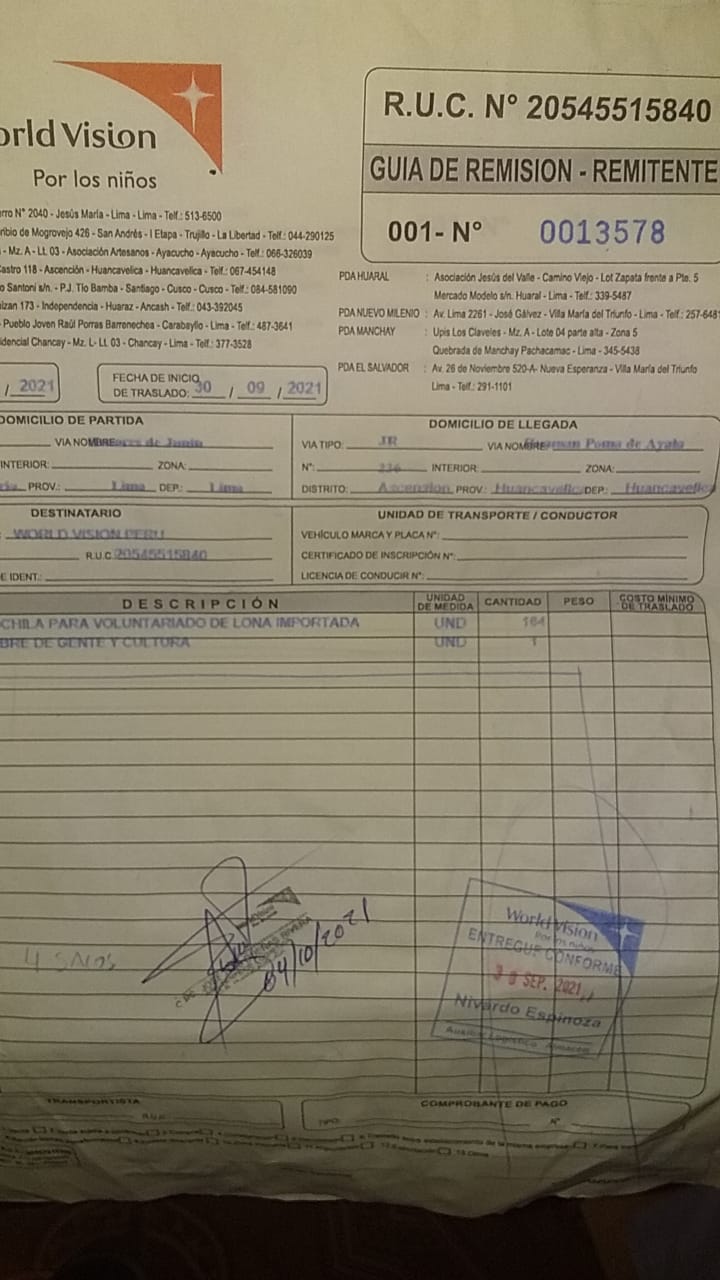 orld Vision
Por los niños
R.U.C. N° 20545515840
GUIA DE REMISION - REMITENTE
001- N° 0013578
erro N° 2040 - Jesús María - Lima - Lima - Telf.: 513-6500
ribio de Mogrovejo 426 - San Andrés - I Etapa - Trujillo - La Libertad - Telf.: 044-290125
- Mz. A - Lt. 03 - Asociación Artesanos - Ayacucho - Ayacucho - Telf.: 066-326039
Castro 118 - Ascención - Huancavelica - Huancavelica - Telf.: 067-454148
o Santoni s/n. - P.J. Tío Bamba - Santiago - Cusco - Cusco - Telf.: 084-581090
izan 173 - Independencia - Huaraz - Ancash - Telf.: 043-392045
Pueblo Joven Raúl Porras Barrenechea - Carabayllo - Lima - Telf.: 487-3641
idencial Chancay - Mz. L- Lt. 03 - Chancay - Lima - Telf.: 377-3528
PDA HUARAL : Asociación Jesús del Valle - Camino Viejo - Lot Zapata frente a Pte. 5
Mercado Modelo s/n. Huaral - Lima - Telf.: 339-5487
PDA NUEVO MILENIO : Av. Lima 2261 - José Gálvez - Villa María del Triunfo - Lima - Telf.: 257-648
PDA MANCHAY : Upis Los Claveles - Mz. A - Lote 04 parte alta - Zona 5
Quebrada de Manchay Pachacamac - Lima - 345-5438
PDA EL SALVADOR : Av. 26 de Noviembre 520-A- Nueva Esperanza - Villa María del Triunfo
Lima - Telf.: 291-1101
/ 2021
FECHA DE INICIO
DE TRASLADO: 30 / 09 / 2021
DOMICILIO DE PARTIDA
VIA NOMBRE de Junin
INTERIOR: ZONA:
PROV.: Lima DEP.: Lima
DOMICILIO DE LLEGADA
VIA TIPO: JR VIA NOMBRE: Poma de Ayala
N°: 236 INTERIOR: ZONA:
DISTRITO: Ascension PROV.: Huancavelic DEP.: Huancavelica
DESTINATARIO
WORLD VISION PERU
R.U.C 20545515840
E IDENT.:
UNIDAD DE TRANSPORTE / CONDUCTOR
VEHÍCULO MARCA Y PLACA N°:
CERTIFICADO DE INSCRIPCIÓN N°:
LICENCIA DE CONDUCIR N°:
DESCRIPCIÓN UNIDAD DE MEDIDA CANTIDAD PESO COSTO MÍNIMO DE TRASLADO
CHILA PARA VOLUNTARIADO DE LONA IMPORTADA UND 164
BRE DE GENTE Y CULTURA UND 1
4 sacos
04/10/2021
World Vision
Por los niños
ENTREGUE CONFORME
30 SEP. 2021
Nivardo Espinoza
Auxiliar Logístico Almacén
TRANSPORTISTA
R.U.C.
COMPROBANTE DE PAGO
TIPO: N°